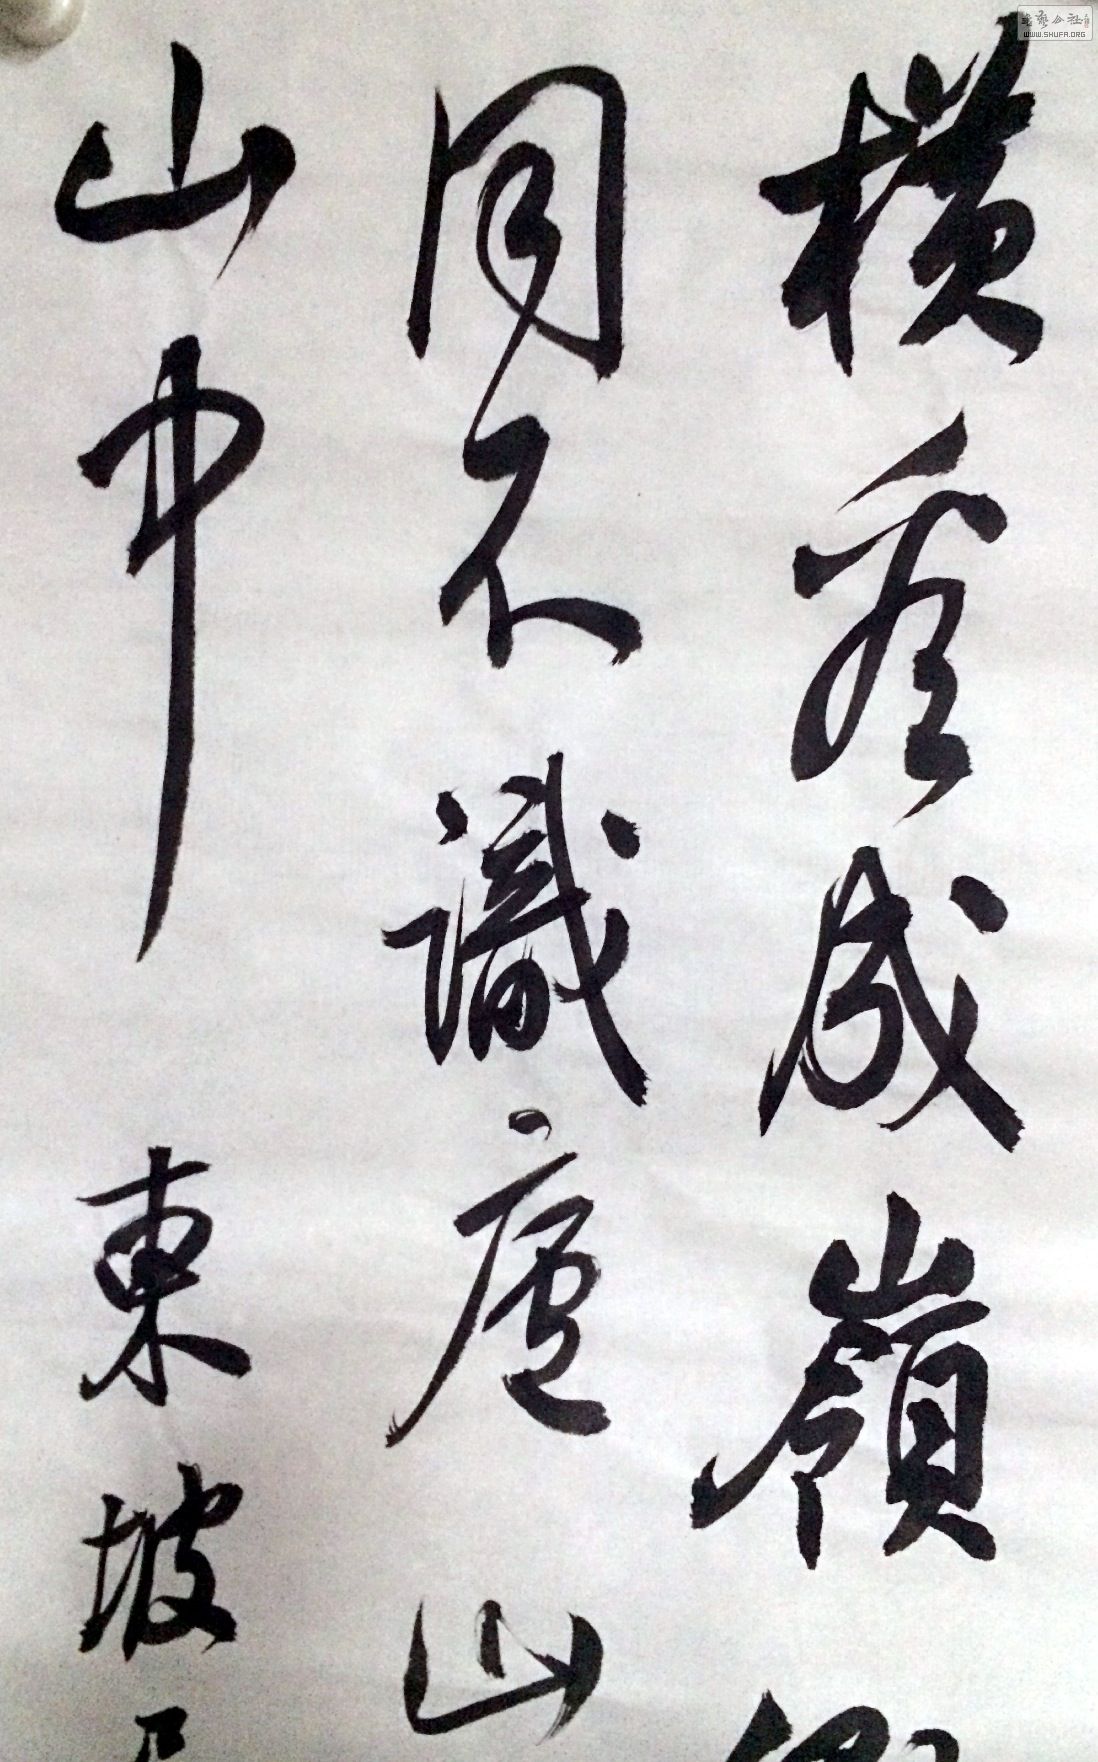 橫看成嶺側
同不識廬山
山中 東坡
書藝公社
WWW.SHUFA.ORG